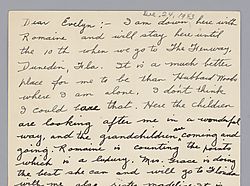 Dec, 24, 1953
Dear Evelyn:- I am down here with
Romaine and will stay here until
the 10th when we go to The Fenway,
Duneden, Fla. It is a much better
place for me to be than Hubbard Woods
where I am alone, I don't think
I could bear that. Here the children
are looking after me in a wonderful
way, and the grandchildren coming and
going. Romaine is counting the points
which is a luxury. Mrs. Grace is doing
the best she can and will go to Florida
with me also